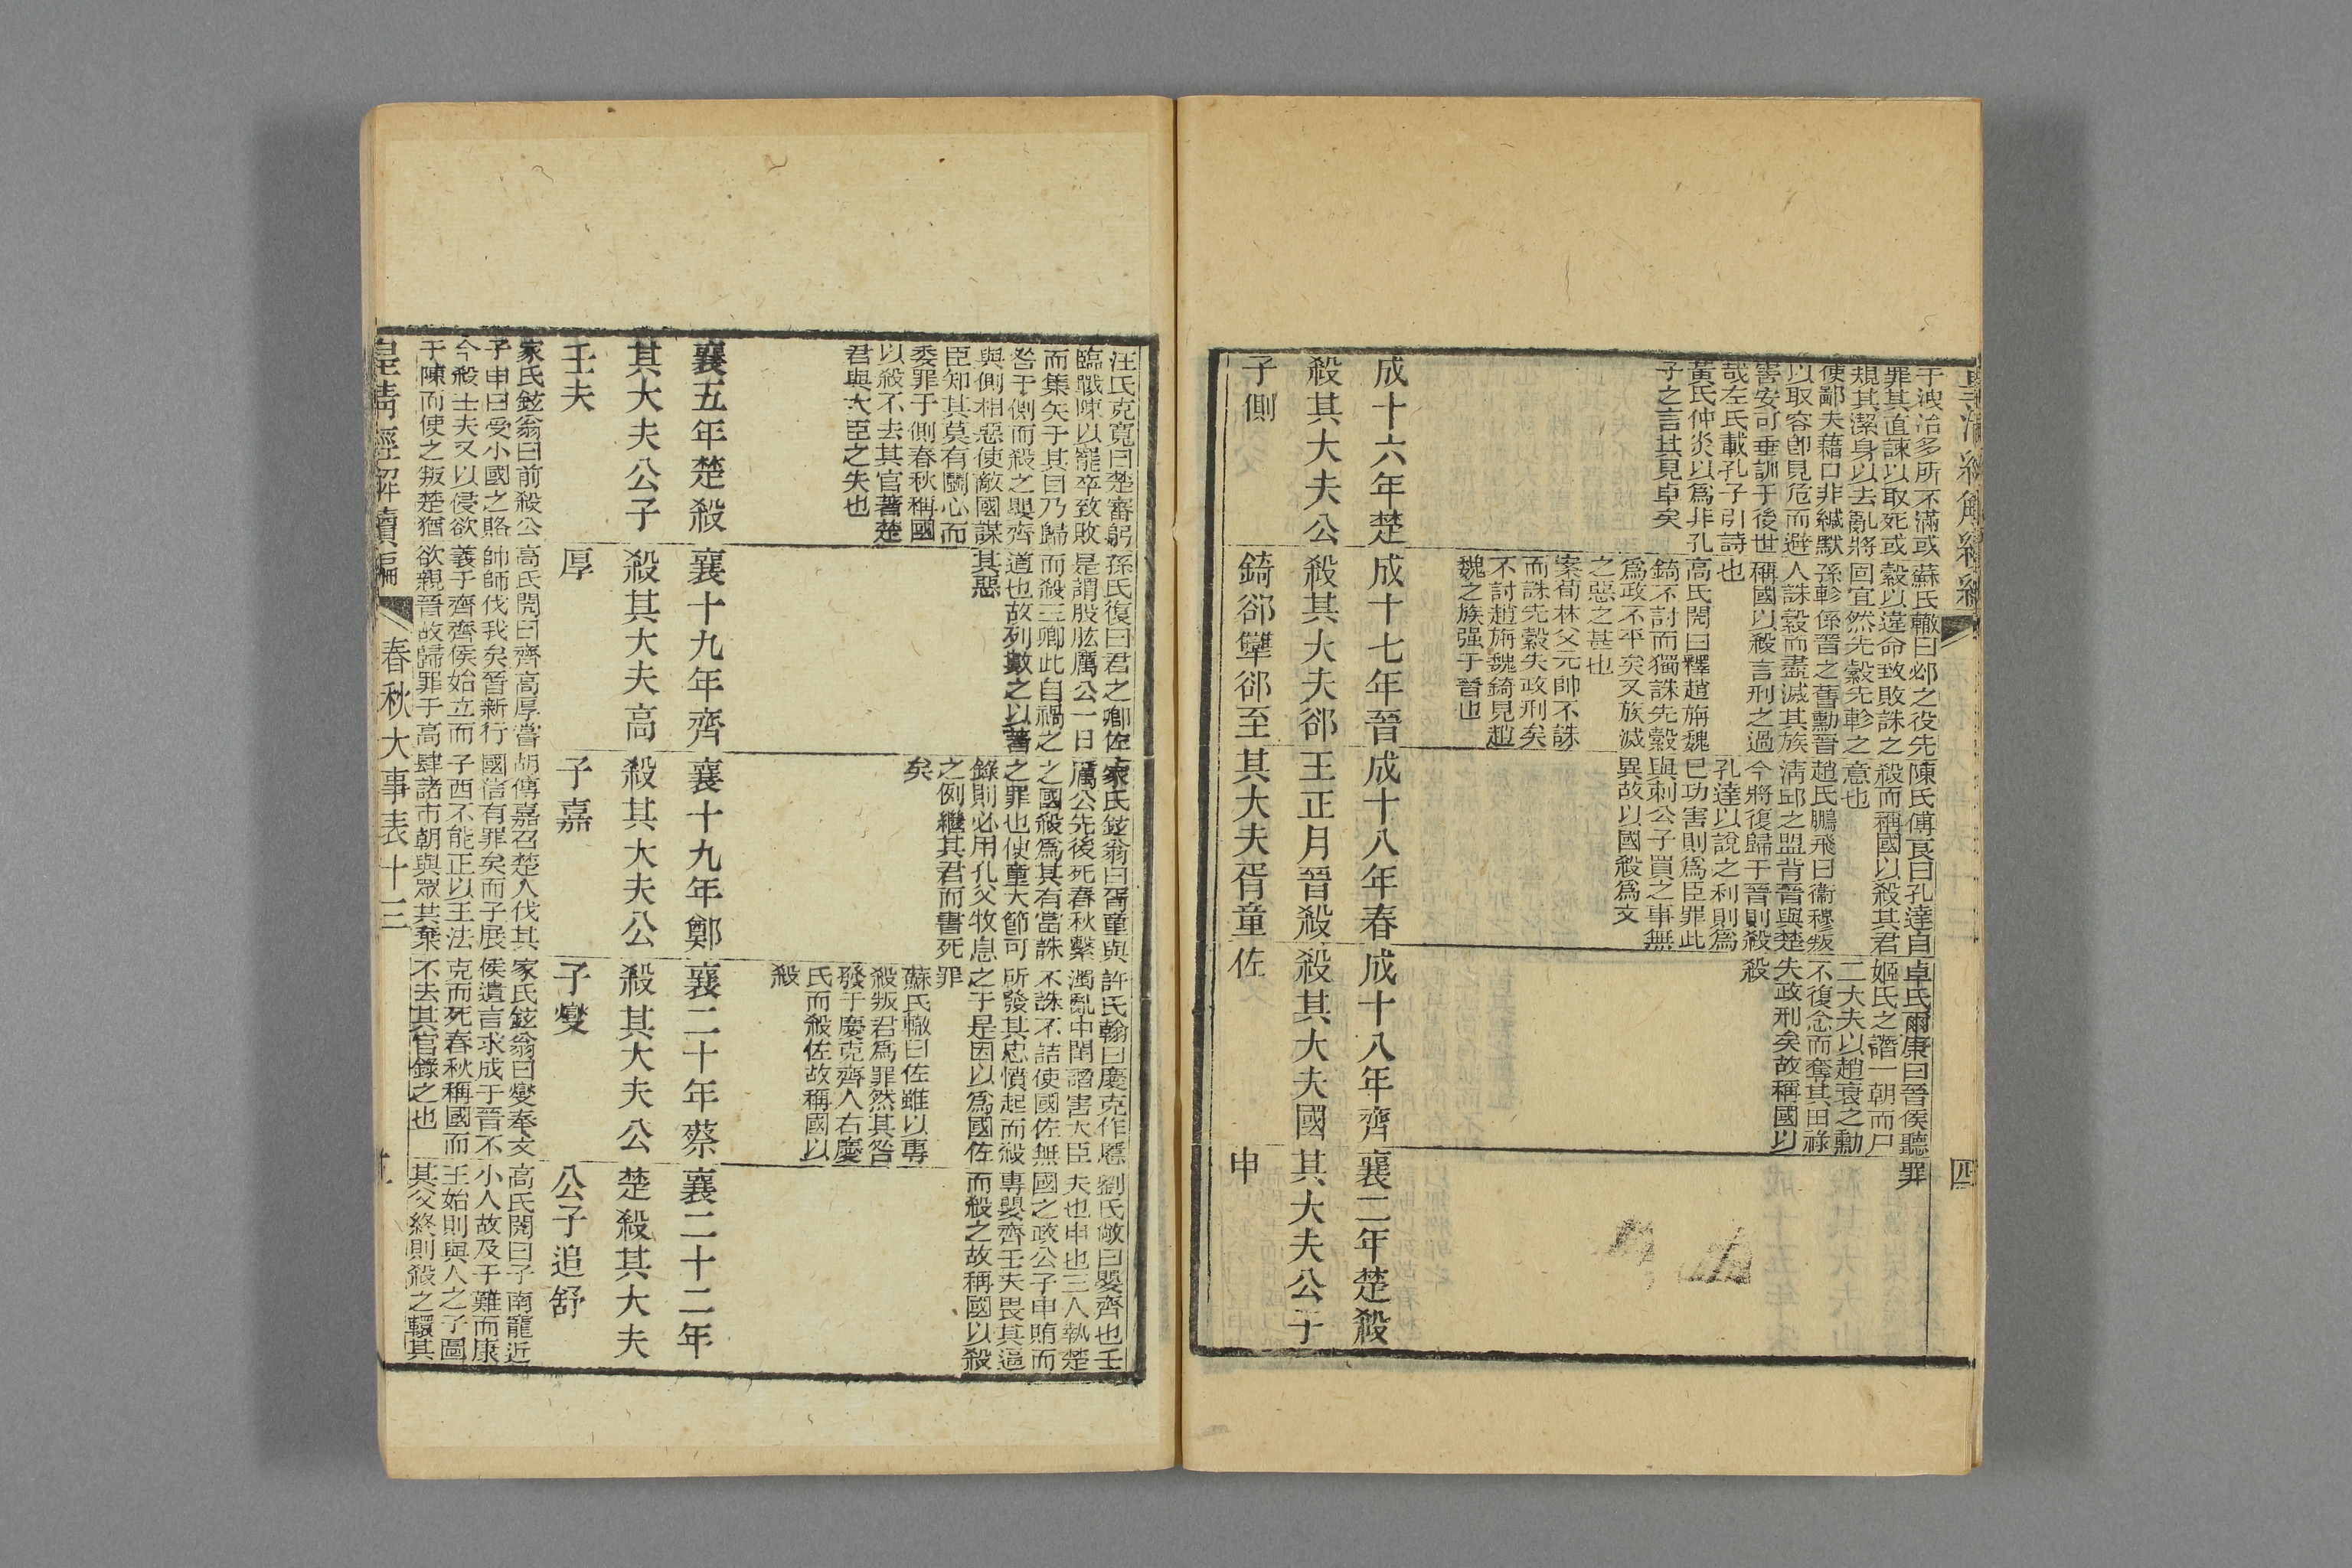 于洩冶多所不滿或
罪其直諫以取死或
規其潔身以去亂將
使鄙夫藉口非緘默
以取容卽見危而避
害安可垂訓于後世
哉左氏載孔子引詩
黃氏仲炎以爲非孔
子之言其見卓矣
蘇氏轍曰邲之役先
縠以違命致敗誅之
回宜然先縠先軫之
孫軫係晉之舊勳晉
人誅縠而盡滅其族
稱國以殺言刑之過
也
高氏閌曰釋趙旃魏
錡不討而獨誅先縠
爲政不平矣又族滅
之惡之甚也
案荀林父元帥不誅
而誅先縠失政刑矣
不討趙旃魏錡見趙
魏之族强于晉也
陳氏傅良曰孔達自
殺而稱國以殺其君
意也
趙氏鵬飛曰衞穆叛
淸邱之盟背晉與楚
今將復歸于晉則殺
孔達以說之利則爲
已功害則爲臣罪此
與刺公子買之事無
異故以國殺爲文
卓氏爾康曰晉侯聽
姬氏之譖一朝而尸
二大夫以趙衰之勳
不復念而奪其田祿
失政刑矣故稱國以
殺
罪
四
成十六年楚
殺其大夫公
子側
成十七年晉
殺其大夫郤
錡郤犫郤至
成十八年春
王正月晉殺
其大夫胥童
成十八年齊
殺其大夫國
佐
襄二年楚殺
其大夫公子
申
汪氏克寬曰楚審躬
臨戰陳以罷卒致敗
而集矢于其目乃歸
咎于側而殺之嬰齊
與側相惡使敵國謀
臣知其莫有鬭心而
委罪于側春秋稱國
以殺不去其官著楚
君與大臣之失也
孫氏復曰君之卿佐
是謂股肱厲公一日
而殺三卿此自禍之
道也故列數之以著
其惡
家氏鉉翁曰胥童與
厲公先後死春秋繫
之國殺爲其有當誅
之罪也使童大節可
錄則必用孔父牧息
之例繼其君而書死
矣
許氏翰曰慶克作慝
濁亂中閨譖害大臣
不誅不詰使國佐無
所發其忠憤起而殺
之于是因以爲國佐
罪
蘇氏轍曰佐雖以專
殺叛君爲罪然其咎
發于慶克齊人右慶
氏而殺佐故稱國以
殺
劉氏敞曰嬰齊也壬
夫也申也三人執楚
國之政公子申賄而
專嬰齊壬夫畏其逼
而殺之故稱國以殺
襄五年楚殺
其大夫公子
壬夫
襄十九年齊
殺其大夫高
厚
襄十九年鄭
殺其大夫公
子嘉
襄二十年蔡
殺其大夫公
子燮
襄二十二年
楚殺其大夫
公子追舒
家氏鉉翁曰前殺公
子申曰受小國之賂
今殺壬夫又以侵欲
于陳而使之叛楚猶
高氏閌曰齊高厚嘗
帥師伐我矣晉新行
義于齊齊侯始立而
欲親晉故歸罪于高
胡傳嘉召楚人伐其
國信有罪矣而子展
子西不能正以王法
肆諸市朝與眾共棄
家氏鉉翁曰燮奉文
侯遺言求成于晉不
克而死春秋稱國而
不去其官錄之也
高氏閌曰子南寵近
小人故及于難而康
王始則與人之子圖
其父終則殺之轘其
皇淸經解續編
春秋大事表十三